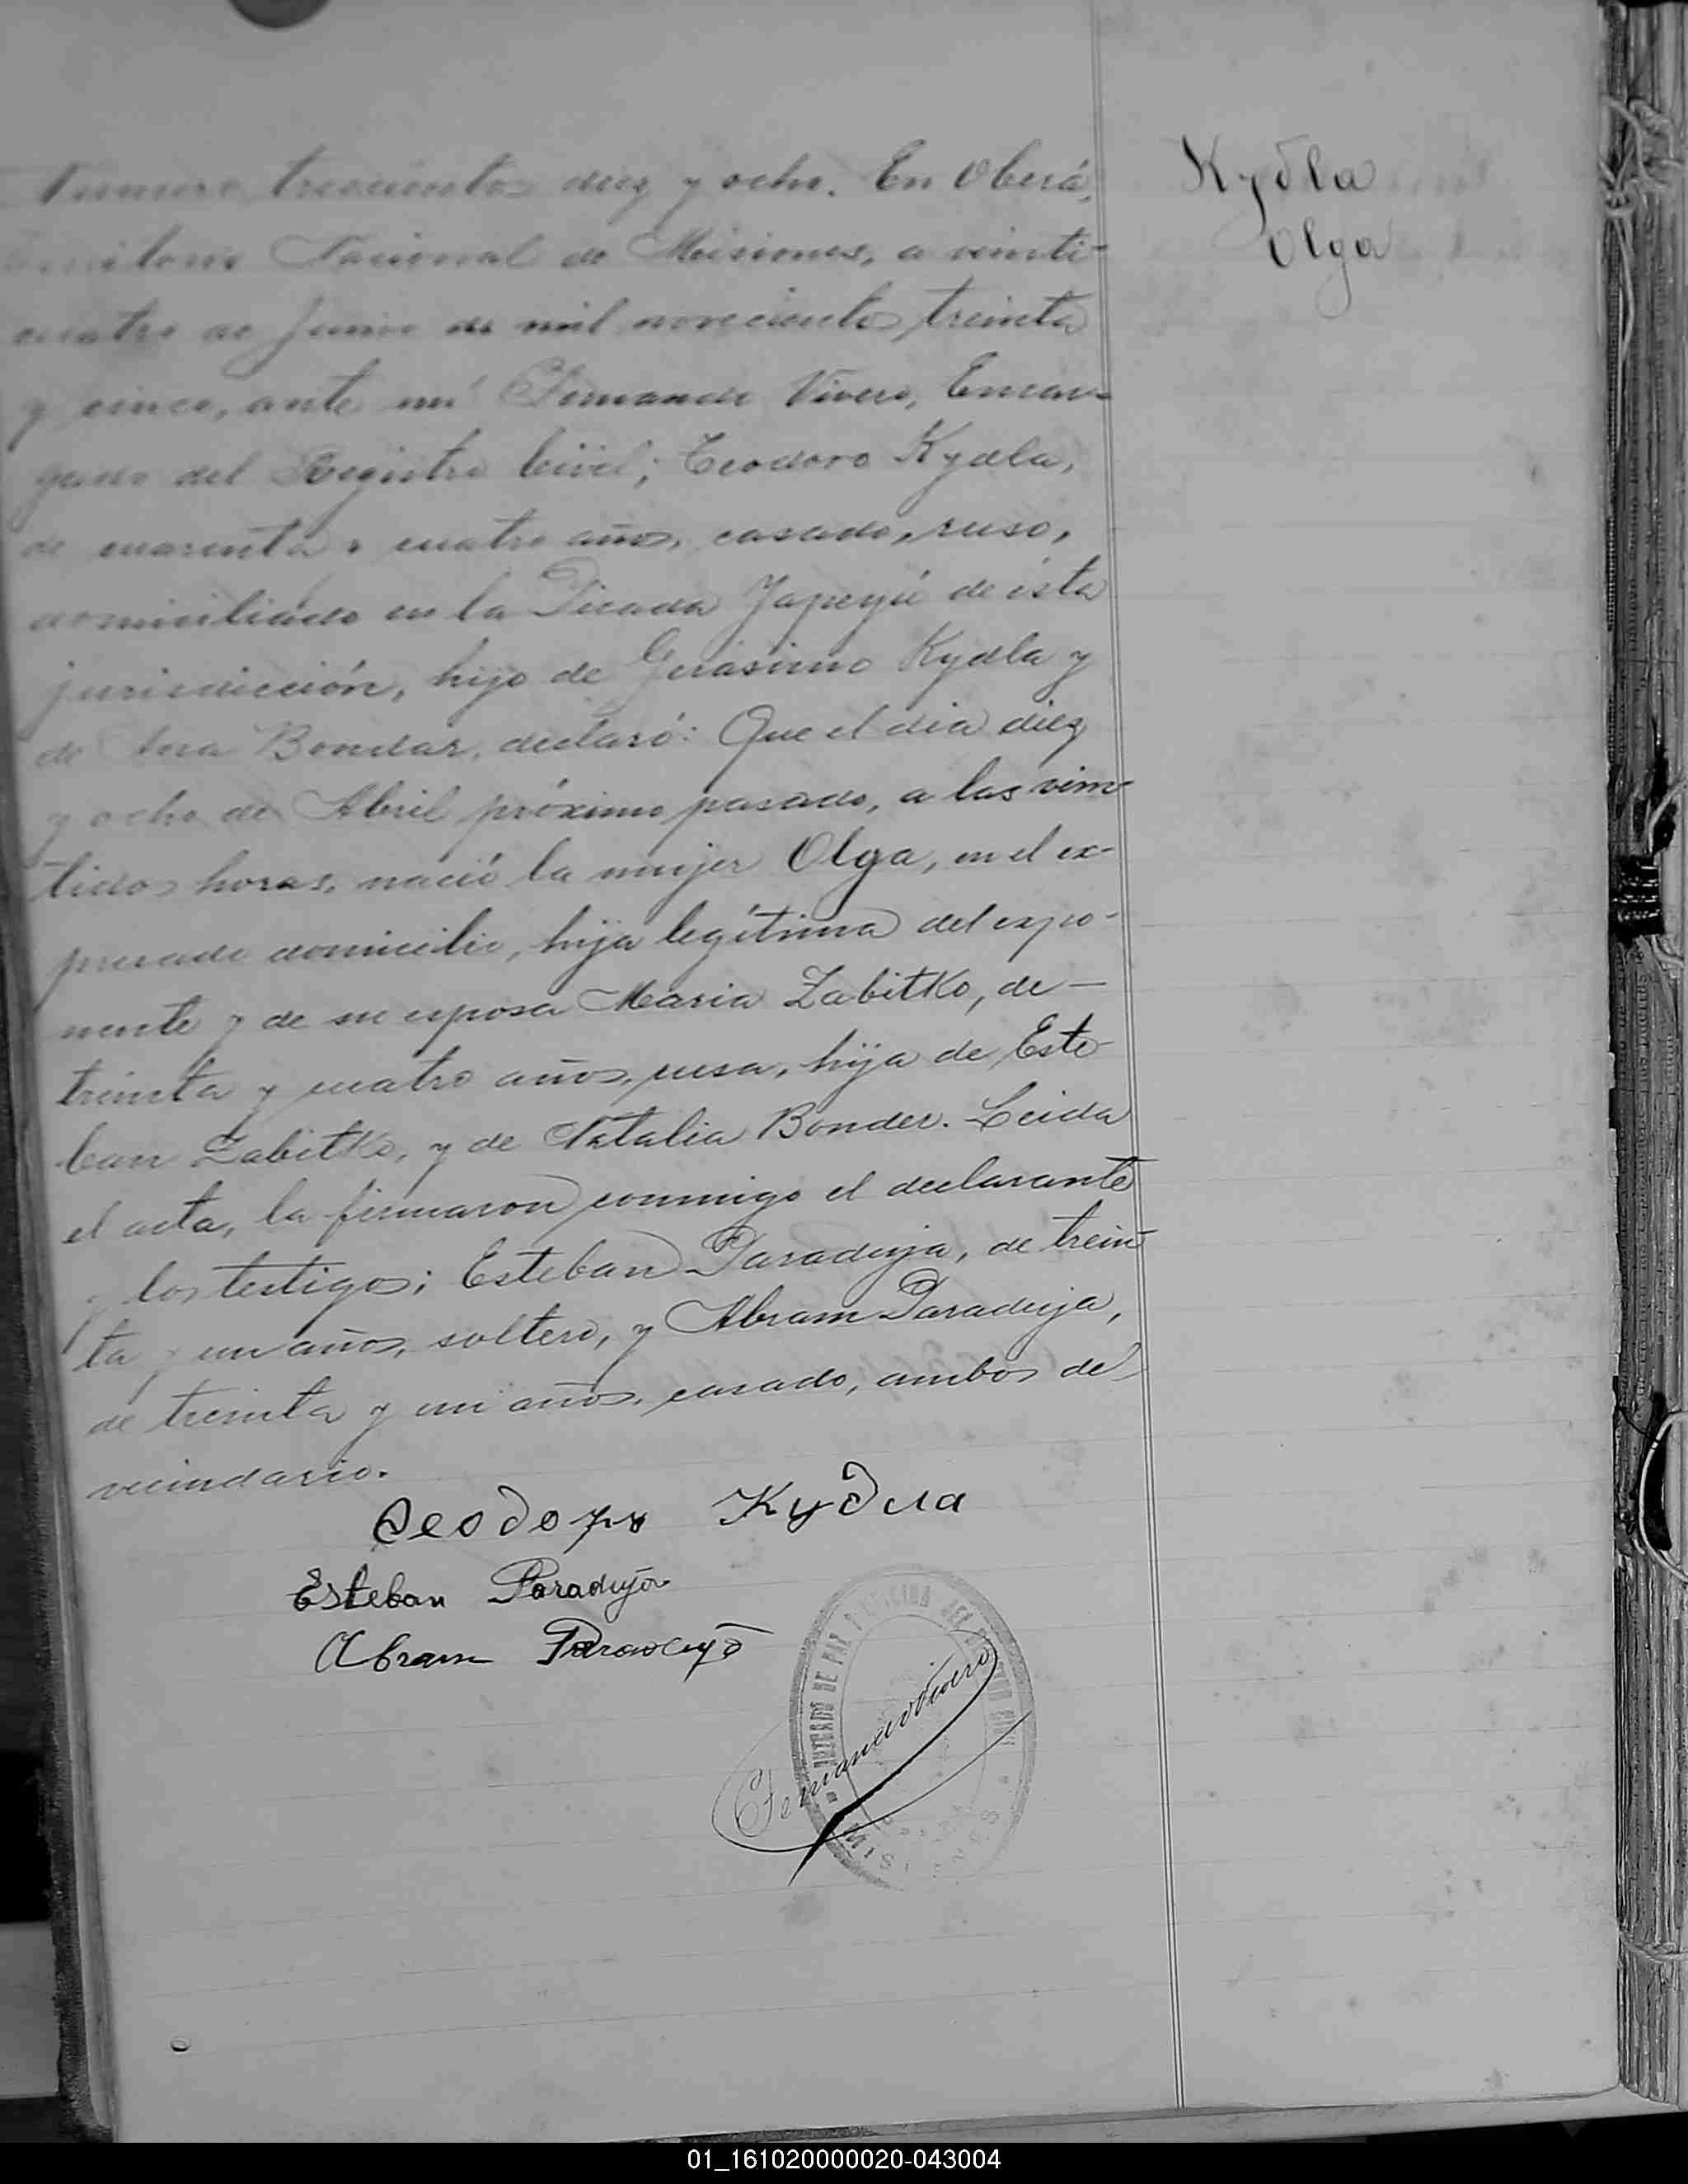 Número trescientos diez y ocho. En Oberá,
Territorio Nacional de Misiones, a veinti-
cuatro de Junio de mil novecientos treinta
y cinco, ante mí Fernando Vivero, Encar-
gado del Registro Civil; Teodoro Kydla,
de cuarenta y cuatro años, casado, ruso,
domiciliado en la Picada Yapeyú de ésta
jurisdicción, hijo de Gerásimo Kydla y
de Ana Bondar, declaró: Que el día diez
y ocho de Abril próximo pasado, a las vein-
tidos horas, nació la mujer Olga, en el ex-
presado domicilio, hija legítima del expo-
nente y de su esposa Maria Zabitko, de -
treinta y cuatro años, rusa, hija de Este-
ban Zabitko, y de Natalia Bonder. Leida
el acta, la firmaron conmigo el declarante
y los testigos; Esteban Paraduja, de trein-
ta y un años, soltero, y Abram Paraduja,
de treinta y un años, casado, ambos de
vecindario.
Kydla
Olga
Ѳеодоръ Кудла
Esteban Paraduja
Abram Paraduja
Fernando Vivero
JUZGADO DE PAZ Y OFICINA DEL REGISTRO CIVIL
MISIONES
01_161020000020-043004